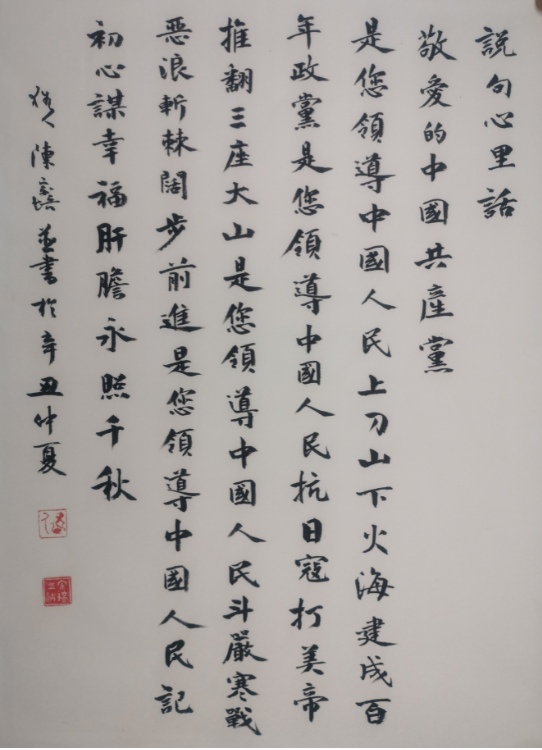 説句心里話
敬愛的中國共產黨
是您領導中國人民上刀山下火海建成百
年政黨是您領導中國人民抗日寇打美帝
推翻三座大山是您領導中國人民斗嚴寒戰
惡浪斬棘闊步前進是您領導中國人民記
初心謀幸福肝膽永照千秋
陳並書於辛丑仲夏